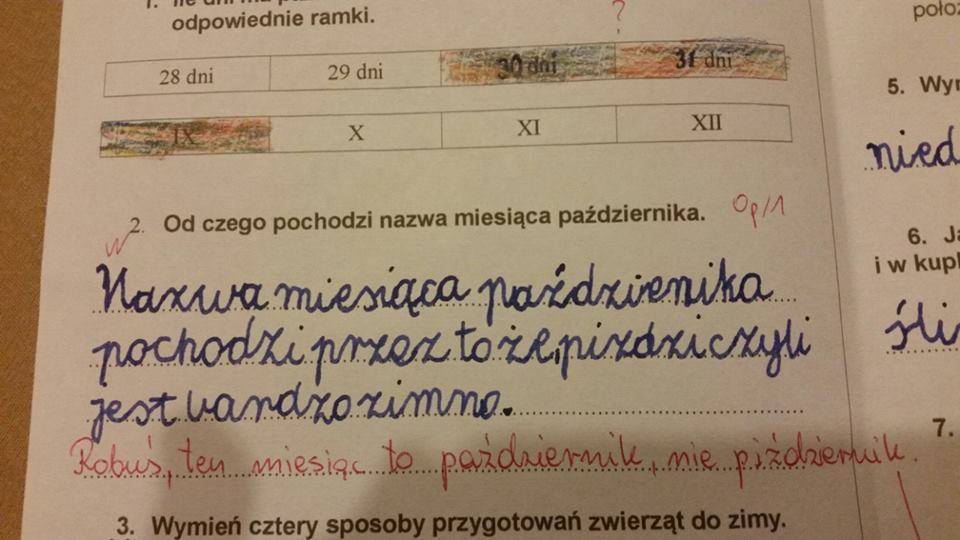 1. Ile dni ma
odpowiednie ramki.
?
28 dni 29 dni 30 dni 31 dni
IX X XI XII
2. Od czego pochodzi nazwa miesiąca października.
0p/1
Nazwa miesiąca paździenika
pochodzi przez to że, piździ czyli
jest bardzo zimno.
Robuś, ten miesiąc to październik, nie piździernik.
3. Wymień cztery sposoby przygotowań zwierząt do zimy.
5.
nied
6.
i w
śli
7.